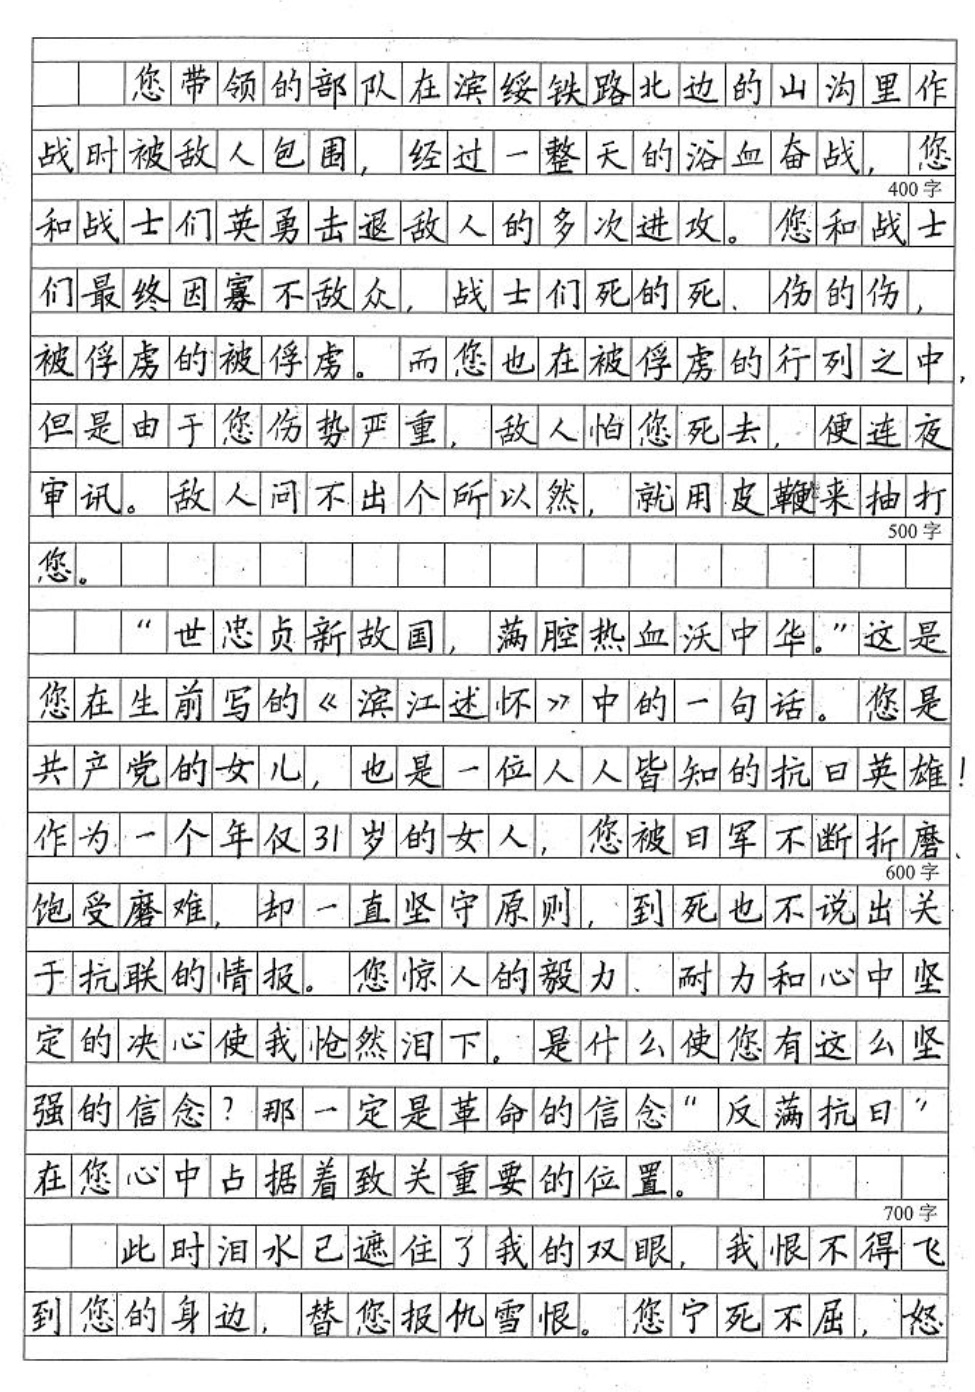 您带领的部队在滨绥铁路北边的山沟里作
战时被敌人包围，经过一整天的浴血奋战，您
400字
和战士们英勇击退敌人的多次进攻。您和战士
们最终因寡不敌众，战士们死的死、伤的伤，
被俘虏的被俘虏。而您也在被俘虏的行列之中，
但是由于您伤势严重，敌人怕您死去，便连夜
审讯。敌人问不出个所以然，就用皮鞭来抽打
500字
您。
“世忠贞新故国，满腔热血沃中华。”这是
您在生前写的《滨江述怀》中的一句话。您是
共产党的女儿，也是一位人人皆知的抗日英雄！
作为一个年仅31岁的女人，您被日军不断折磨、
600字
饱受磨难，却一直坚守原则，到死也不说出关
于抗联的情报。您惊人的毅力、耐力和心中坚
定的决心使我怆然泪下。是什么使您有这么坚
强的信念？那一定是革命的信念“反满抗日”
在您心中占据着致关重要的位置。
700字
此时泪水已遮住了我的双眼，我恨不得飞
到您的身边，替您报仇雪恨。您宁死不屈，怒